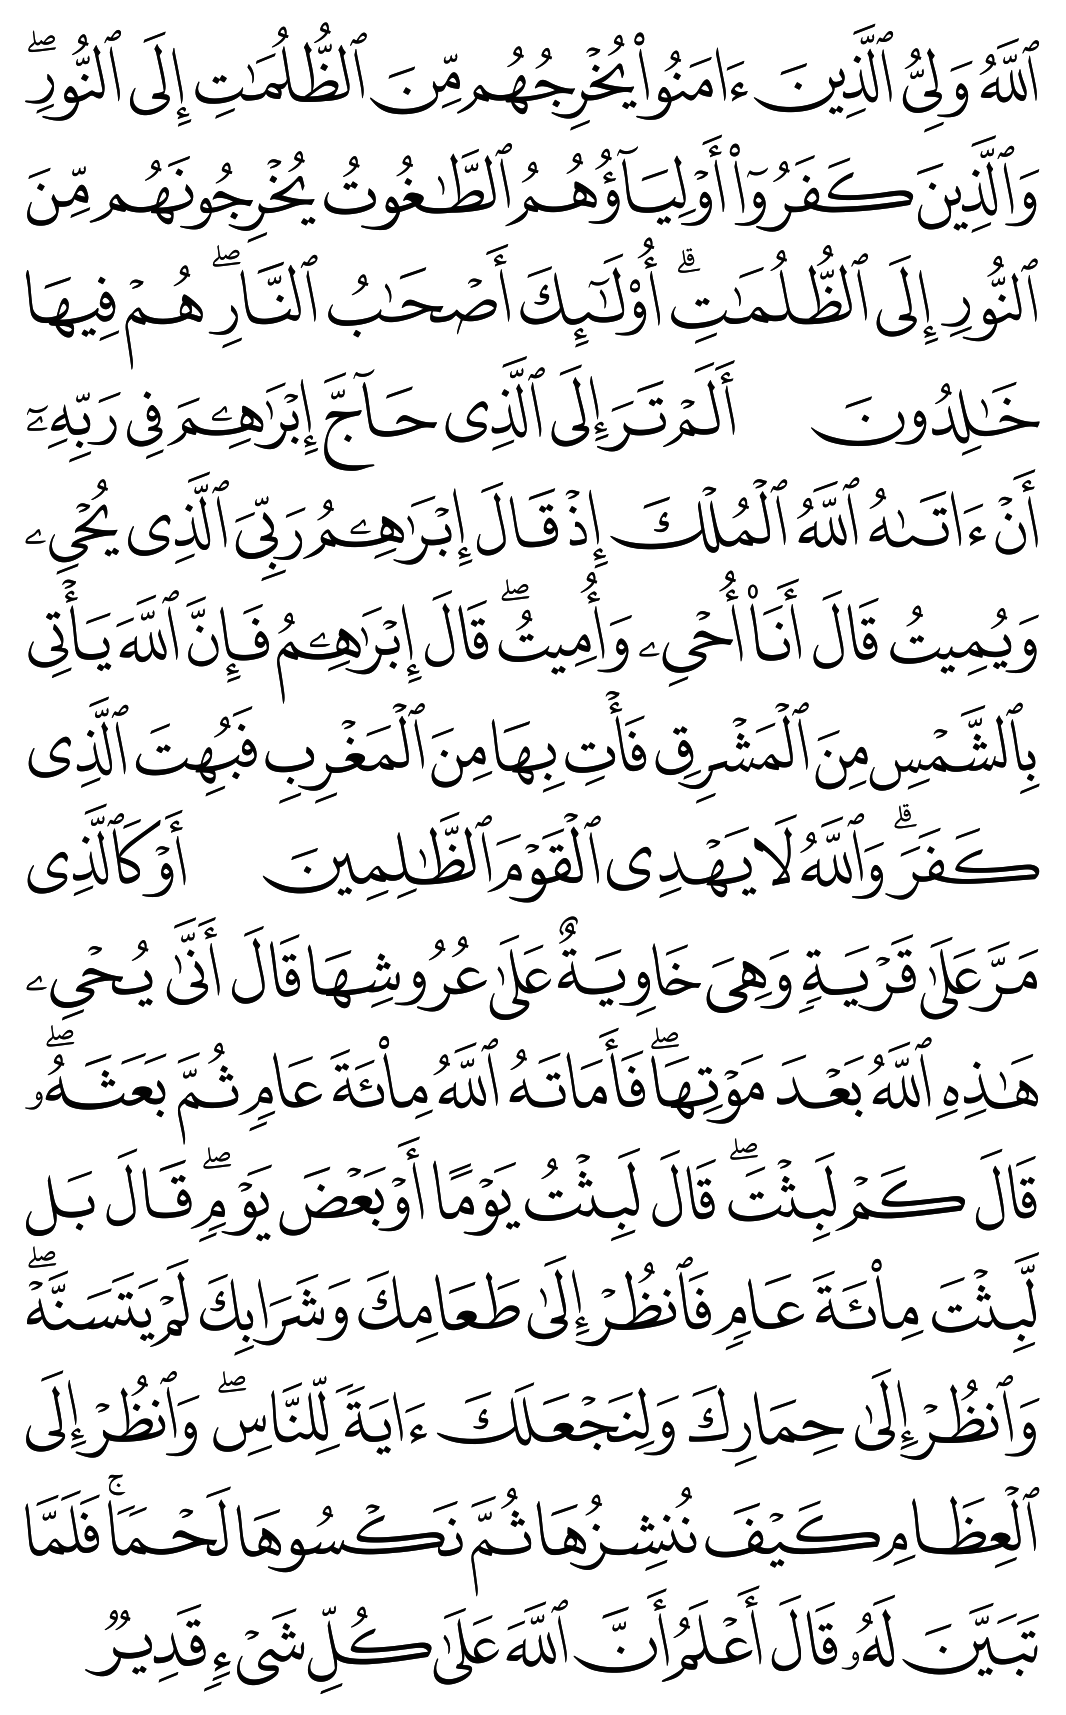 ٱللَّهُ وَلِىُّ ٱلَّذِينَ ءَامَنُوا۟ يُخْرِجُهُم مِّنَ ٱلظُّلُمَـٰتِ إِلَى ٱلنُّورِ ۖ
وَٱلَّذِينَ كَفَرُوٓا۟ أَوْلِيَآؤُهُمُ ٱلطَّـٰغُوتُ يُخْرِجُونَهُم مِّنَ
ٱلنُّورِ إِلَى ٱلظُّلُمَـٰتِ ۗ أُو۟لَـٰٓئِكَ أَصْحَـٰبُ ٱلنَّارِ ۖ هُمْ فِيهَا
خَـٰلِدُونَ أَلَمْ تَرَ إِلَى ٱلَّذِى حَآجَّ إِبْرَٰهِـۧمَ فِى رَبِّهِۦٓ
أَنْ ءَاتَىٰهُ ٱللَّهُ ٱلْمُلْكَ إِذْ قَالَ إِبْرَٰهِـۧمُ رَبِّىَ ٱلَّذِى يُحْىِۦ
وَيُمِيتُ قَالَ أَنَا۠ أُحْىِۦ وَأُمِيتُ ۖ قَالَ إِبْرَٰهِـۧمُ فَإِنَّ ٱللَّهَ يَأْتِى
بِٱلشَّمْسِ مِنَ ٱلْمَشْرِقِ فَأْتِ بِهَا مِنَ ٱلْمَغْرِبِ فَبُهِتَ ٱلَّذِى
كَفَرَ ۗ وَٱللَّهُ لَا يَهْدِى ٱلْقَوْمَ ٱلظَّـٰلِمِينَ أَوْ كَٱلَّذِى
مَرَّ عَلَىٰ قَرْيَةٍ وَهِىَ خَاوِيَةٌ عَلَىٰ عُرُوشِهَا قَالَ أَنَّىٰ يُحْىِۦ
هَـٰذِهِ ٱللَّهُ بَعْدَ مَوْتِهَا ۖ فَأَمَاتَهُ ٱللَّهُ مِا۟ئَةَ عَامٍ ثُمَّ بَعَثَهُۥ ۖ
قَالَ كَمْ لَبِثْتَ ۖ قَالَ لَبِثْتُ يَوْمًا أَوْ بَعْضَ يَوْمٍ ۖ قَالَ بَل
لَّبِثْتَ مِا۟ئَةَ عَامٍ فَٱنظُرْ إِلَىٰ طَعَامِكَ وَشَرَابِكَ لَمْ يَتَسَنَّهْ ۖ
وَٱنظُرْ إِلَىٰ حِمَارِكَ وَلِنَجْعَلَكَ ءَايَةً لِّلنَّاسِ ۖ وَٱنظُرْ إِلَى
ٱلْعِظَامِ كَيْفَ نُنشِزُهَا ثُمَّ نَكْسُوهَا لَحْمًا ۚ فَلَمَّا
تَبَيَّنَ لَهُۥ قَالَ أَعْلَمُ أَنَّ ٱللَّهَ عَلَىٰ كُلِّ شَىْءٍ قَدِيرٌ